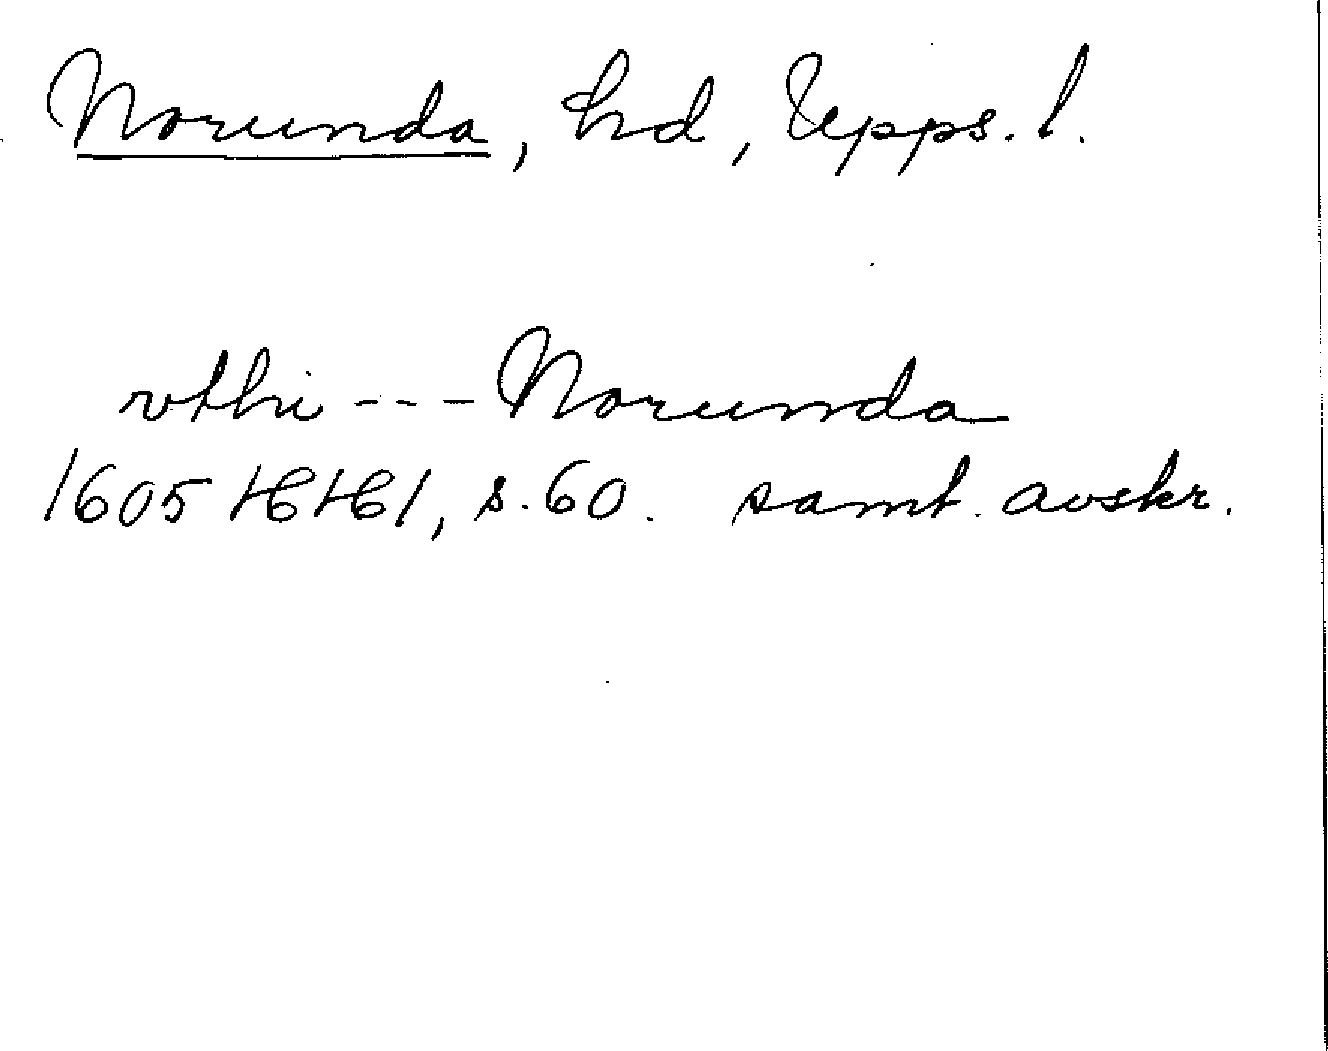 Norunda, hd, Upps. l.
vthi --- Norunda
1605 HH1, s. 60. samt. avskr.